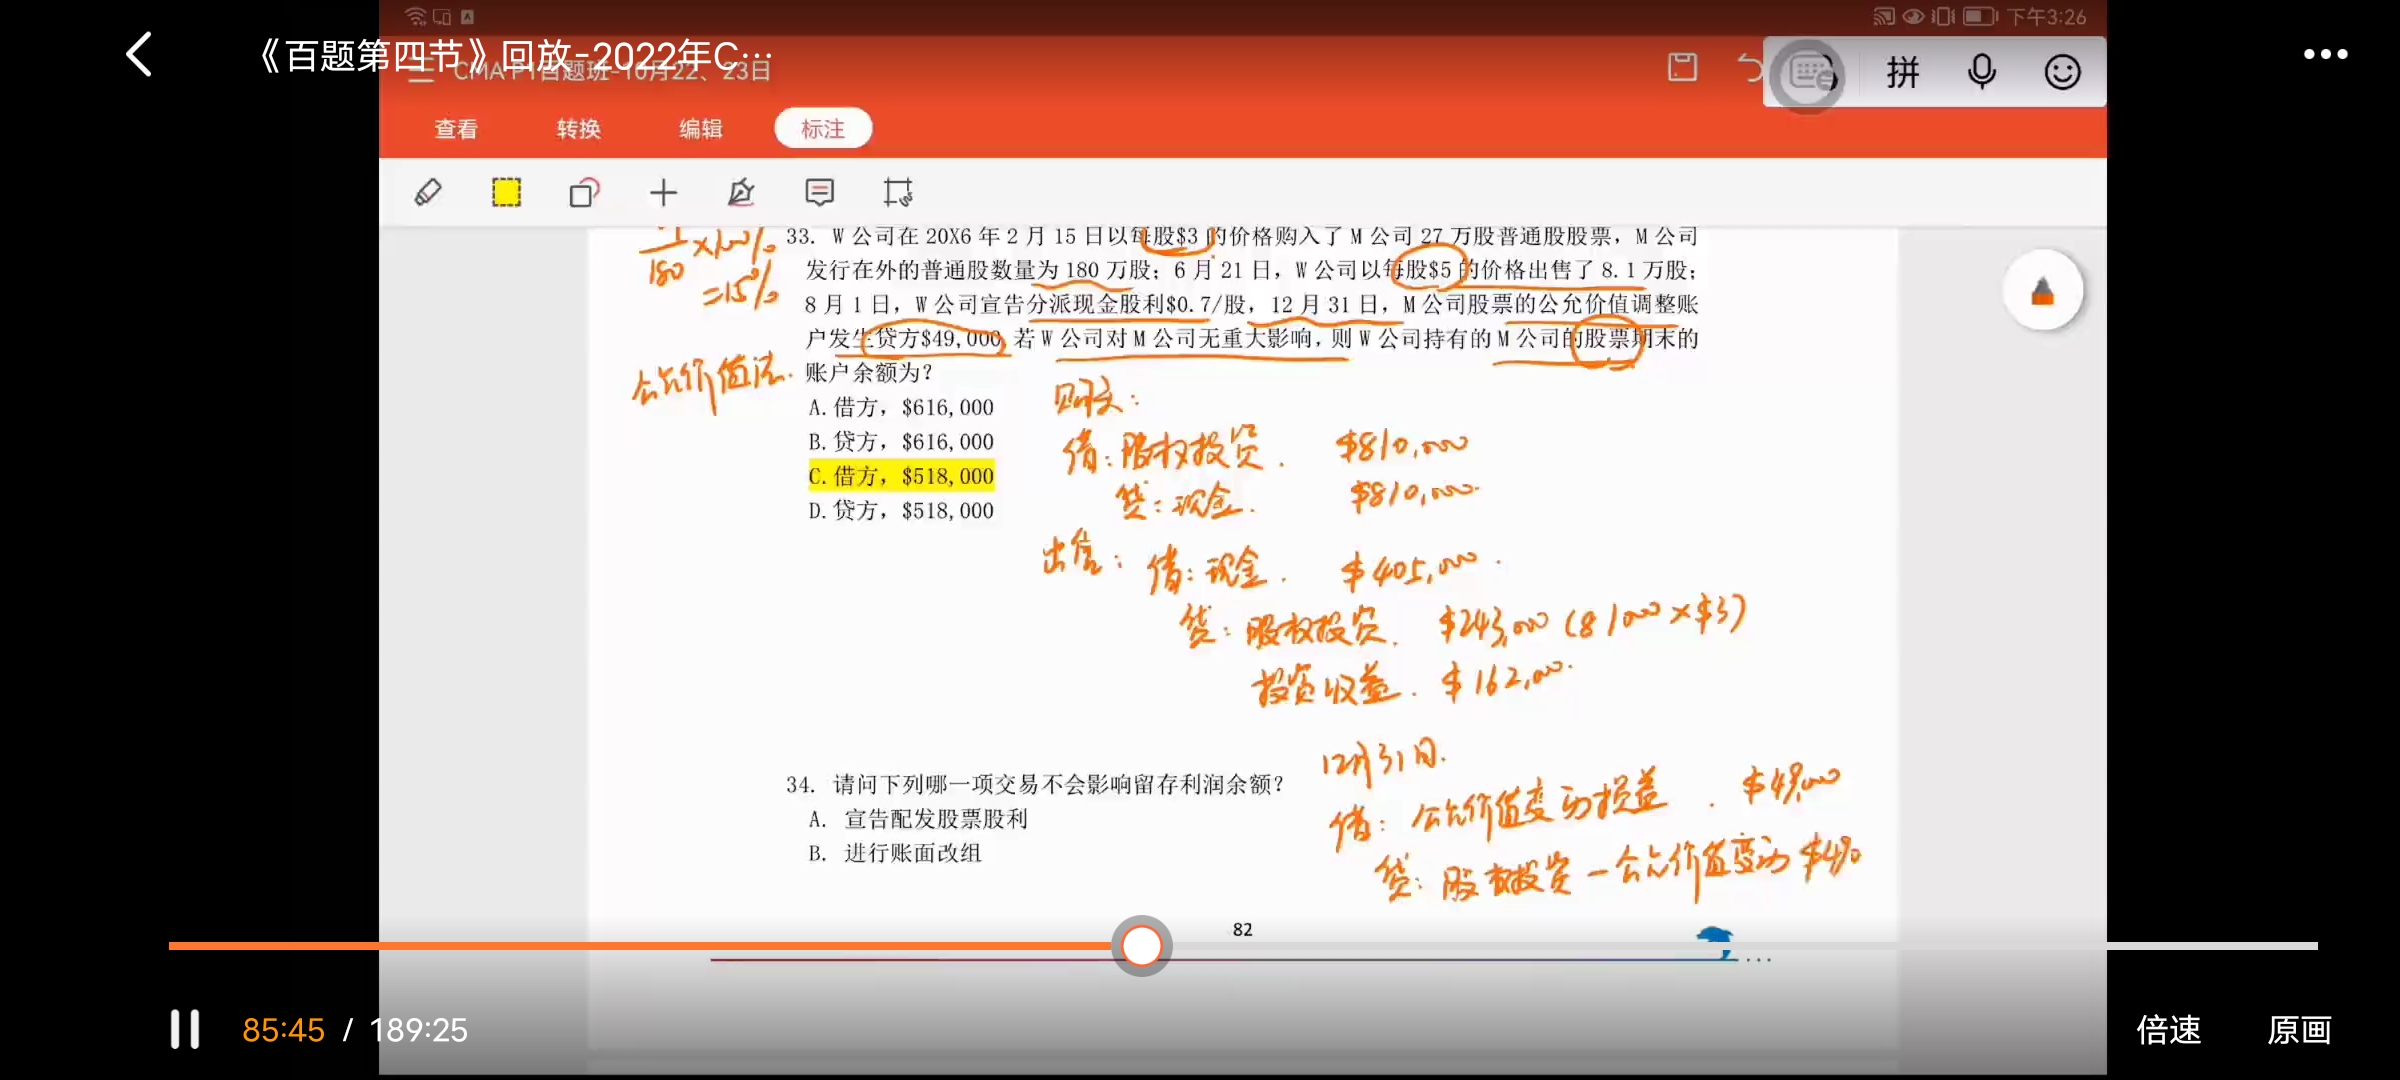 下午3:26
《百题第四节》回放-2022年C…
CMA P1百题班-10月22、23日
拼
查看 转换 编辑 标注
33. W 公司在 20X6 年 2 月 15 日以每股$3 的价格购入了 M 公司 27 万股普通股股票，M 公司
发行在外的普通股数量为 180 万股；6 月 21 日，W 公司以每股$5 的价格出售了 8.1 万股；
8 月 1 日，W 公司宣告分派现金股利$0.7/股，12 月 31 日，M 公司股票的公允价值调整账
户发生贷方$49,000，若 W 公司对 M 公司无重大影响，则 W 公司持有的 M 公司的股票期末的
账户余额为？
×100%
180
=15%
公允价值法.
A. 借方，$616,000
B. 贷方，$616,000
C. 借方，$518,000
D. 贷方，$518,000
购买：
借：股权投资. $810,000
贷：现金. $810,000.
出售：借：现金. $405,000.
贷：股权投资. $243,000 (81000×$3)
投资收益. $162,000.
12月31日.
借：公允价值变动损益. $49,000
贷：股权投资-公允价值变动 $490
34. 请问下列哪一项交易不会影响留存利润余额？
A. 宣告配发股票股利
B. 进行账面改组
82
85:45 / 189:25
倍速 原画